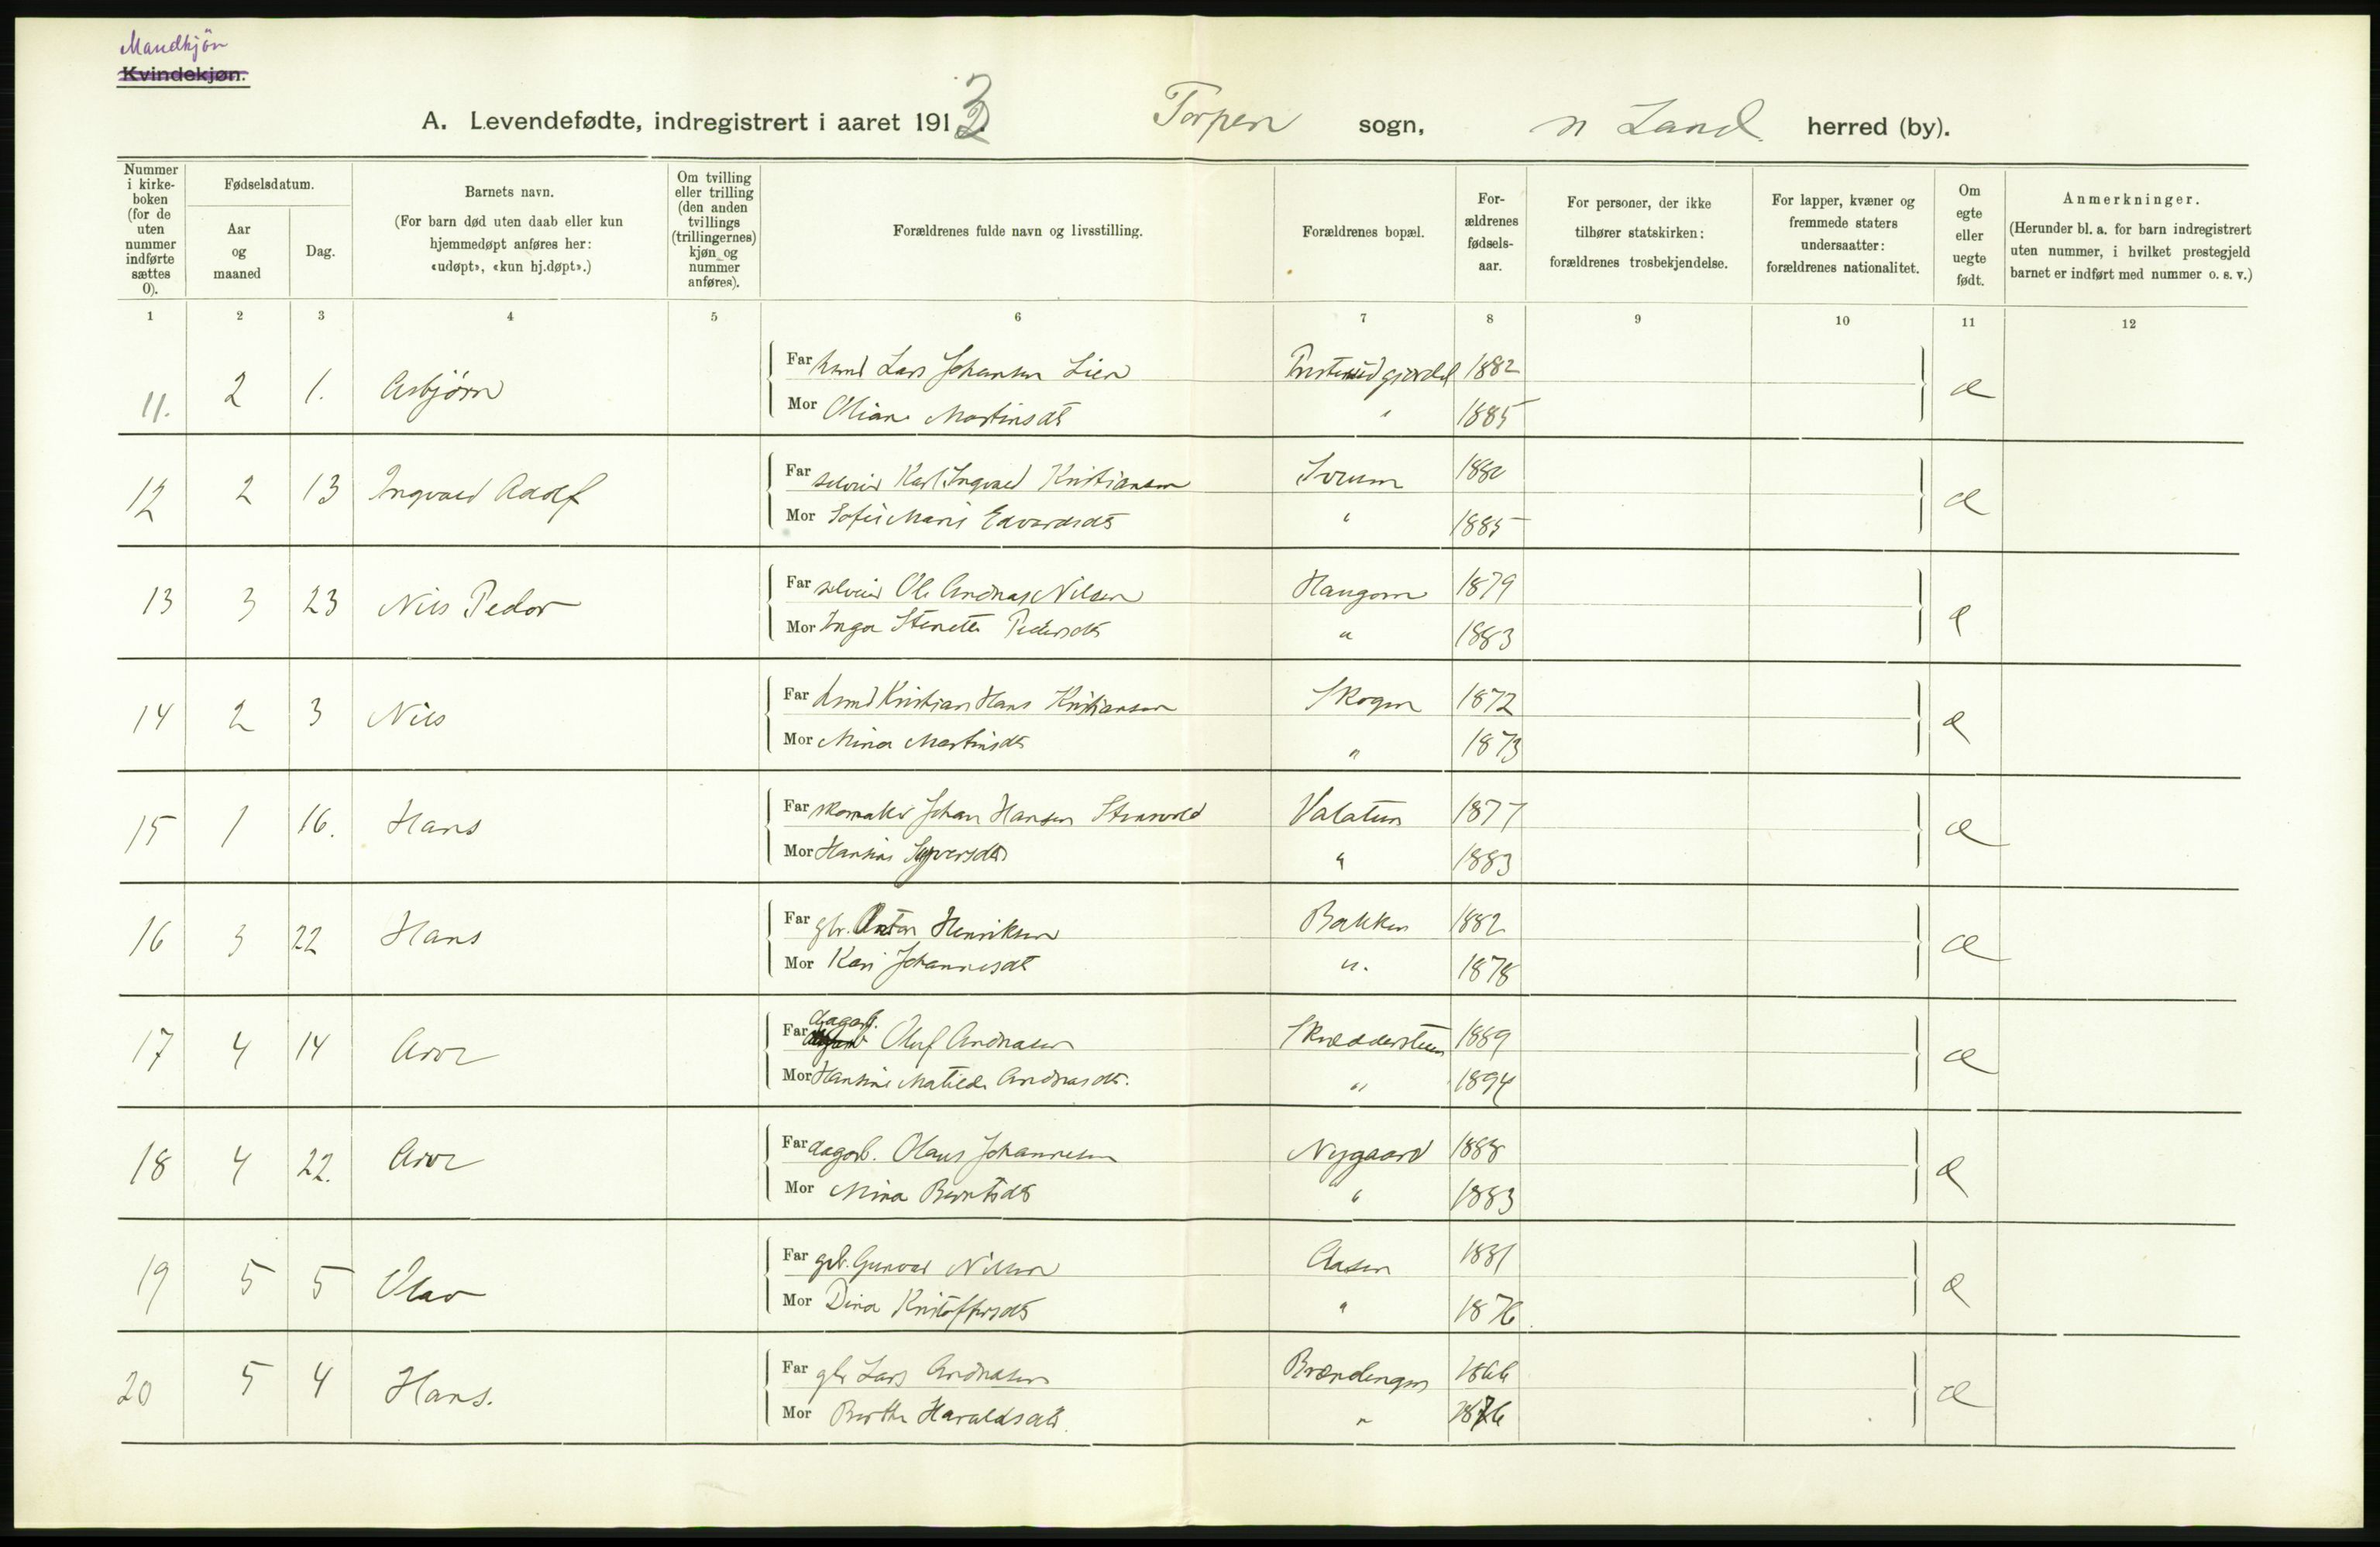 Mandkjøn
Kvindekjøn.
A. Levendefødte, indregistrert i aaret 1913. Torpen sogn, n Land herred (by).
Nummer i kirke- boken (for de uten nummer indførte sættes 0).
Fødselsdatum.
Aar og maaned
Dag.
Barnets navn.
(For barn død uten daab eller kun hjemmedøpt anføres her: «udøpt», «kun hj.døpt».)
Om tvilling eller trilling (den anden tvillings (trillingernes) kjøn og nummer anføres).
Forældrenes fulde navn og livsstilling.
Forældrenes bopæl.
For- ældrenes fødsels- aar.
For personer, der ikke tilhører statskirken: forældrenes trosbekjendelse.
For lapper, kvæner og fremmede staters undersaatter: forældrenes nationalitet.
Om egte eller uegte født.
Anmerkninger.
(Herunder bl. a. for barn indregistrert uten nummer, i hvilket prestegjeld barnet er indført med nummer o. s. v.)
1 2 3 4 5 6 7 8 9 10 11 12
11. 2 1. Asbjørn Far Lars Johansen Lien 1882 e
Mor Martinsdt " 1885
12 2 13 Ingvald Adolf Far selveier Karl Ingvald Kristiansen 1880 e
Mor Sofie Marie Edvardsdt " 1885
13 3 23 Nils Peder Far selveier Ole Andreas Nilsen Haugom 1879 e
Mor Inga Stenette Pedersdt " 1883
14 2 3 Nils Far Kristian Hans Kristiansen Skogen 1872 e
Mor Mina Martinsdt " 1873
15 1 16. Hans Far skomaker Johan Hansen Valatun 1877 e
Mor Hansine Syversdt " 1883
16 3 22 Hans Far gbr. Anton Henriksen Bakken 1882 e
Mor Kari Johannesdt " 1878
17 4 14 Arve Far dagarb. Oluf Andreasen Skreddersteen 1889 e
Mor Hansine Matilde Andreasdt. " 1894
18 4 22. Arve Far dagarb. Olaus Johannesen Nygaard 1888 e
Mor Mina Berntsdt " 1883
19 5 5 Olav Far gbr. Gunvald Nilsen Aasen 1881 e
Mor Dina Kristoffersdt " 1876
20 5 4 Hans. Far gbr Lars Andreasen Brændengen 1866 e
Mor Berthe Haraldsdt. " 1876